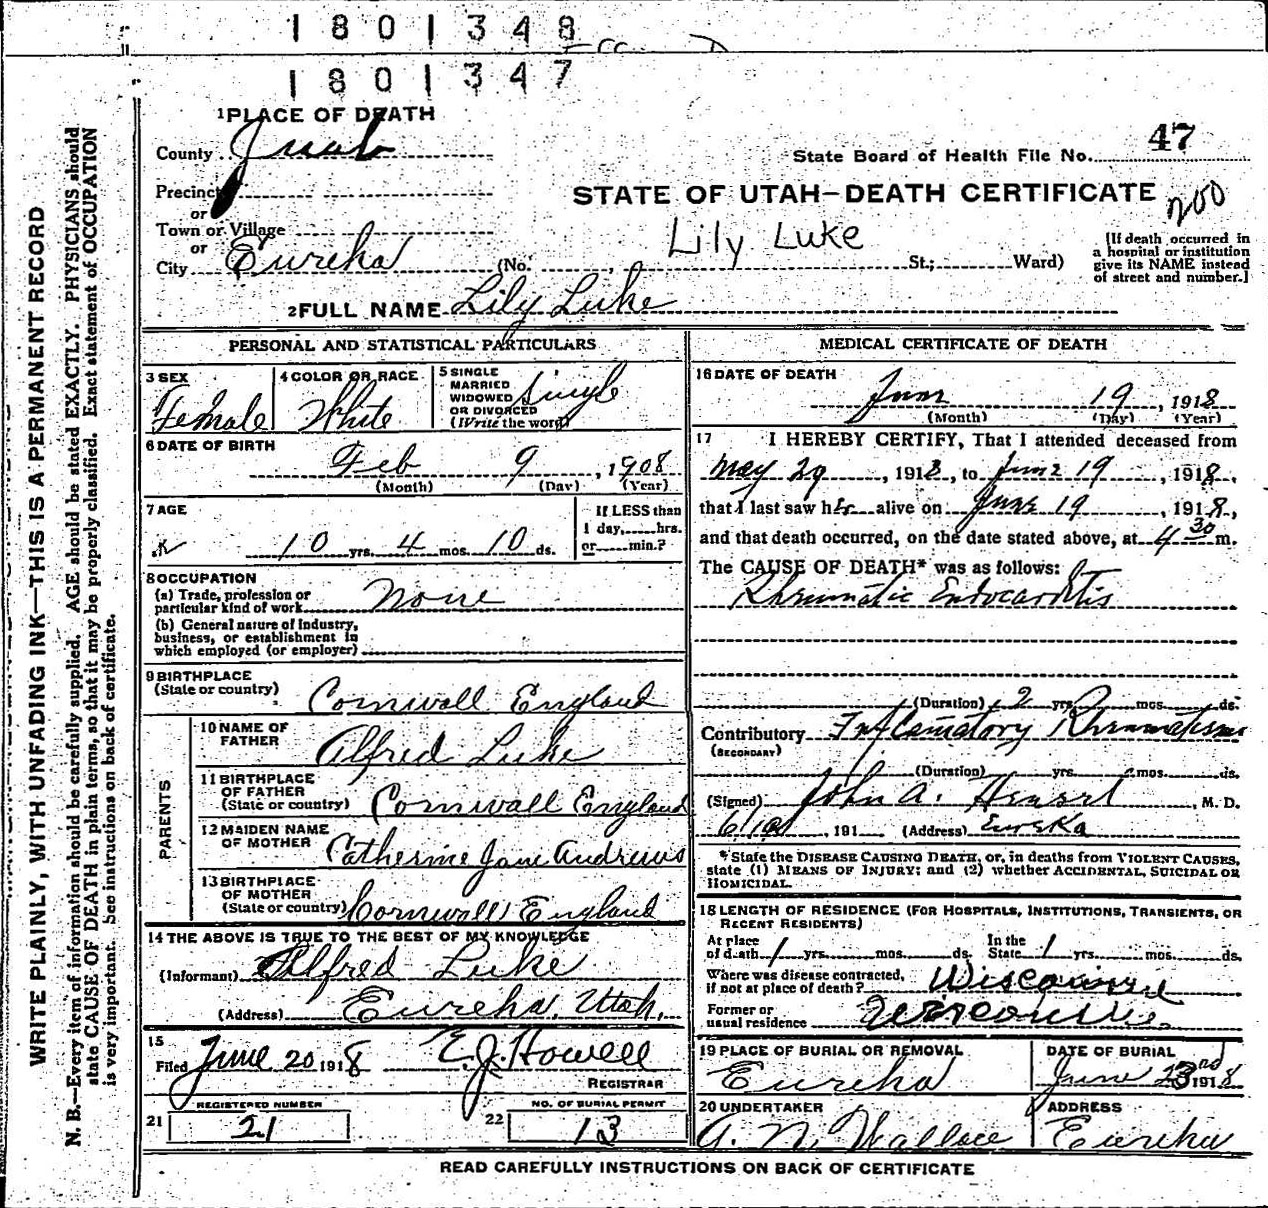 1801348
1801347
1 PLACE OF DEATH
County Juab
State Board of Health File No. 47
Precinct
or
STATE OF UTAH—DEATH CERTIFICATE
200
Town or Village
or
Lily Luke
City Eureka (No. , St.; Ward)
[If death occurred in
a hospital or institution
give its NAME instead
of street and number.]
2 FULL NAME Lily Luke
WRITE PLAINLY, WITH UNFADING INK—THIS IS A PERMANENT RECORD
N. B.—Every item of information should be carefully supplied. AGE should be stated EXACTLY. PHYSICIANS should
state CAUSE OF DEATH in plain terms, so that it may be properly classified. Exact statement of OCCUPATION
is very important. See instructions on back of certificate.
PERSONAL AND STATISTICAL PARTICULARS
3 SEX
Female
4 COLOR OR RACE
White
5 SINGLE
MARRIED
WIDOWED
OR DIVORCED
(Write the word)
Single
6 DATE OF BIRTH
Feb 9, 1908
(Month) (Day) (Year)
7 AGE
10 yrs. 4 mos. 10 ds.
If LESS than
1 day, hrs.
or min.?
8 OCCUPATION
(a) Trade, profession or
particular kind of work None
(b) General nature of Industry,
business, or establishment in
which employed (or employer)
9 BIRTHPLACE
(State or country) Cornwall England
PARENTS
10 NAME OF
FATHER Alfred Luke
11 BIRTHPLACE
OF FATHER
(State or country) Cornwall England
12 MAIDEN NAME
OF MOTHER Catherine Jane Andrews
13 BIRTHPLACE
OF MOTHER
(State or country) Cornwall England
14 THE ABOVE IS TRUE TO THE BEST OF MY KNOWLEDGE
(Informant) Alfred Luke
(Address) Eureka, Utah.
15
Filed June 20 1918 E. J. Howell
REGISTRAR
REGISTERED NUMBER
21 21
NO. OF BURIAL PERMIT
22 13
MEDICAL CERTIFICATE OF DEATH
16 DATE OF DEATH
June 19, 1918
(Month) (Day) (Year)
17 I HEREBY CERTIFY, That I attended deceased from
May 29, 1918, to June 19, 1918,
that I last saw her alive on June 19, 1918,
and that death occurred, on the date stated above, at 4 30 m.
The CAUSE OF DEATH* was as follows:
Rheumatic Endocarditis
(Duration) 2 yrs. mos. ds.
Contributory Inflamatory Rheumatism
(SECONDARY)
(Duration) yrs. mos. ds.
(Signed) John A. , M. D.
6/19, 191 (Address) Eureka
*State the DISEASE CAUSING DEATH, or, in deaths from VIOLENT CAUSES,
state (1) MEANS OF INJURY; and (2) whether ACCIDENTAL, SUICIDAL OR
HOMICIDAL.
18 LENGTH OF RESIDENCE (FOR HOSPITALS, INSTITUTIONS, TRANSIENTS, OR
RECENT RESIDENTS)
At place
of death 1 yrs. mos. ds. In the
State 1 yrs. mos. ds.
Where was disease contracted,
if not at place of death?
Former or
usual residence
19 PLACE OF BURIAL OR REMOVAL
Eureka
DATE OF BURIAL
June 23rd 1918
20 UNDERTAKER
A. N. Wallace
ADDRESS
Eureka
READ CAREFULLY INSTRUCTIONS ON BACK OF CERTIFICATE